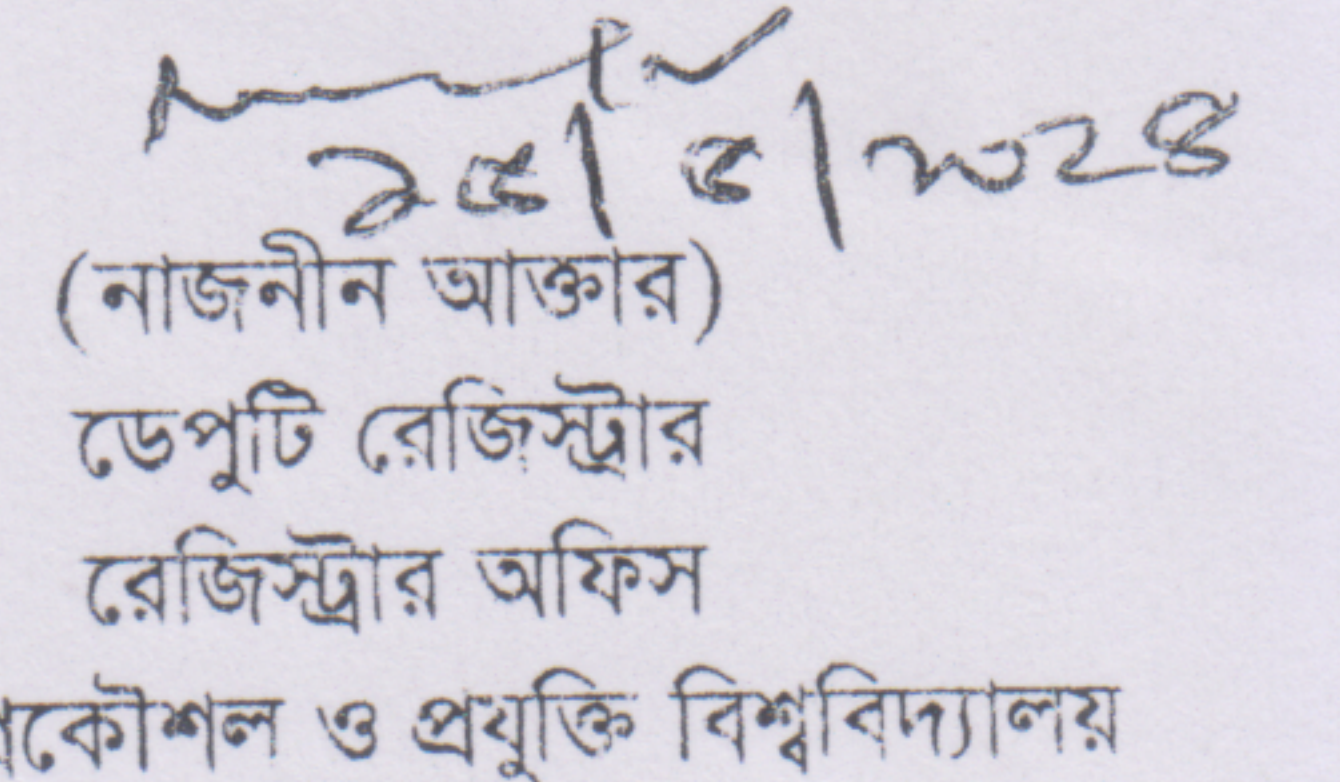 (নাজনীন আক্তার)
ডেপুটি রেজিস্ট্রার
রেজিস্ট্রার অফিস
কৌশল ও প্রযুক্তি বিশ্ববিদ্যালয়